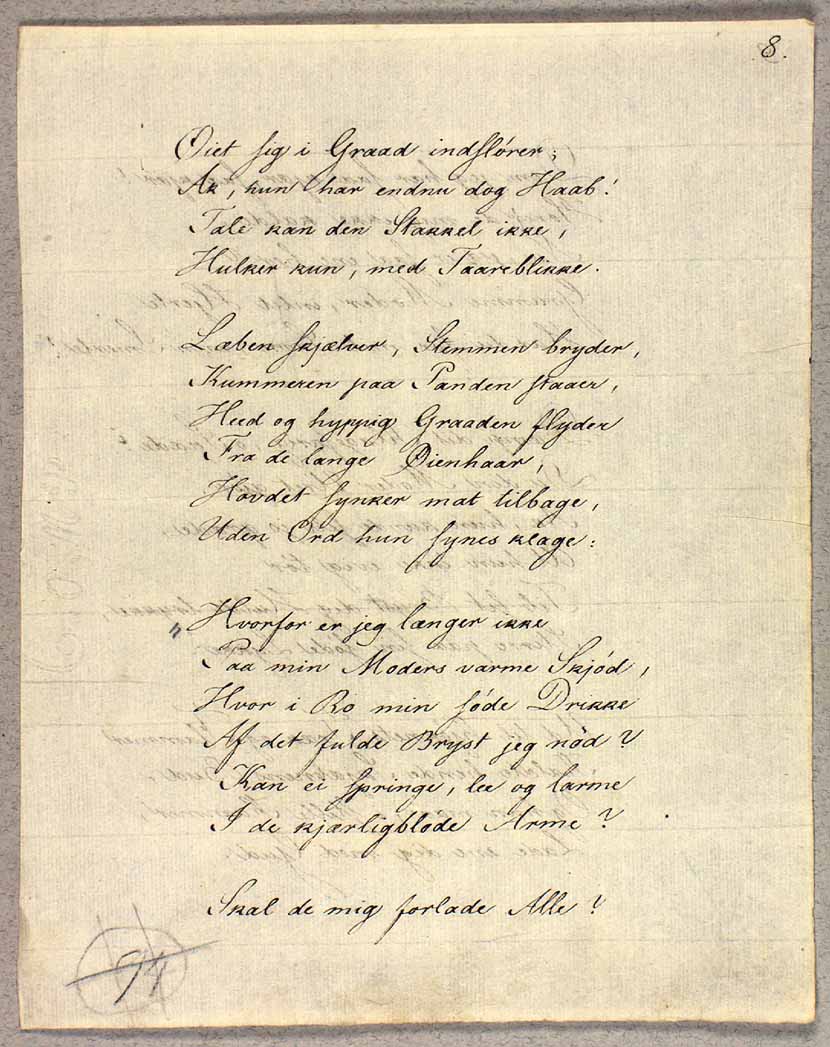 8.
Øiet sig i Graad indslörer;
Ak, hun har endnu dog Haab!
Tale kan den Stakkel ikke,
Hulker kun, med Taareblikke.
Læben skjælver, Stemmen bryder,
Kummeren paa Panden staaer,
Heed og hyppig Graaden flyder
Fra de lange Øienhaar,
Hovdet synker mat tilbage,
Uden Ord hun synes klage:
„Hvorfor er jeg længer ikke
Paa min Moders varme Skjöd,
Hvor i Ro min söde Drikke
Af det fulde Bryst jeg nöd?
Kan ei springe, lee og larme
I de kjærligblode Arme?
Skal de mig forlade Alle?
94